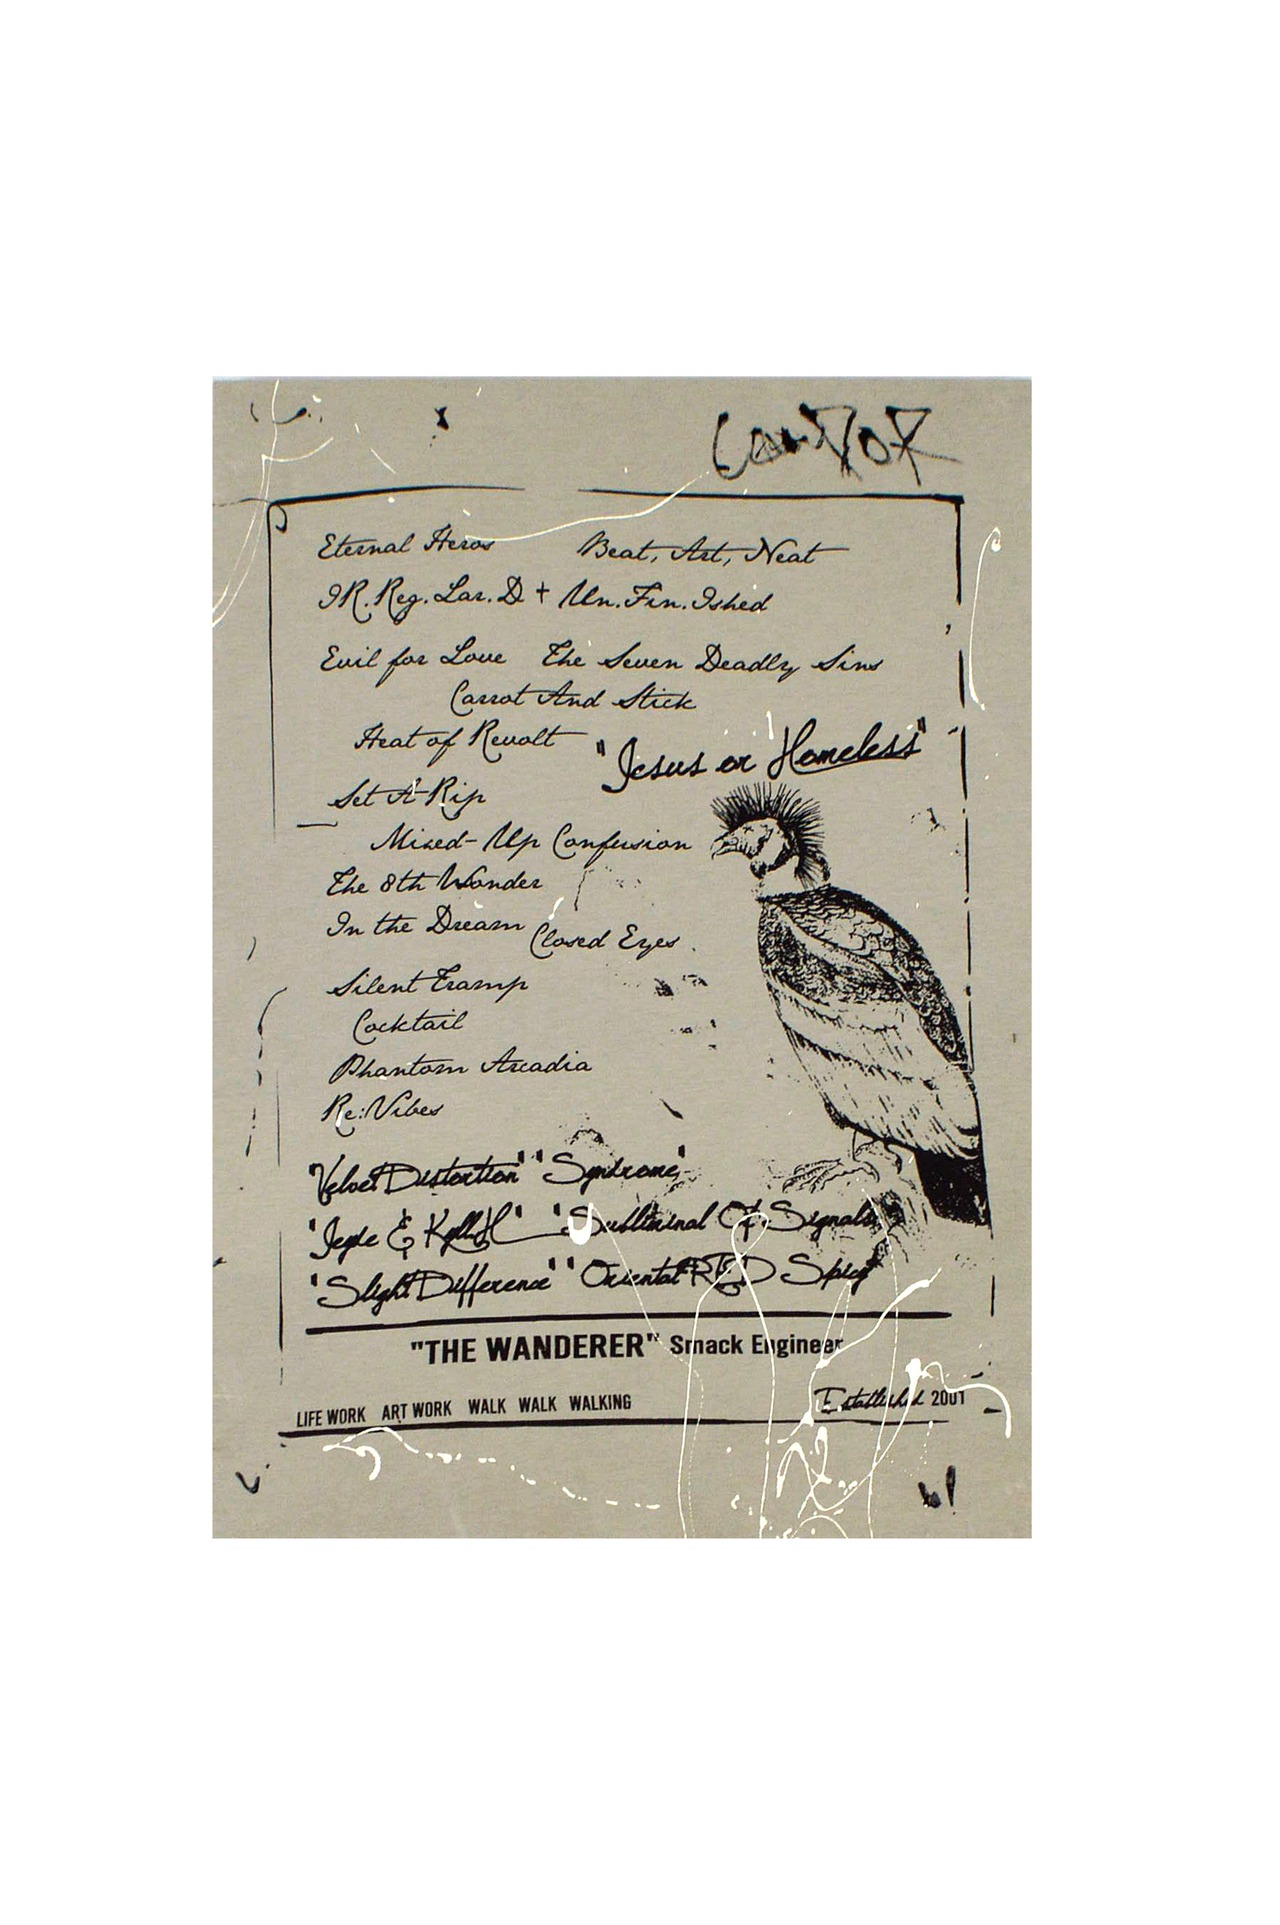 Condor
Eternal Heros Beat, Art, Neat
IR.Reg.Lar.D + Un.Fin.Ished
Evil for Love The Seven Deadly Sins
Carrot And Stick
Heat of Revolt
"Jesus or Homeless"
Set A Rip
Mixed-Up Confusion
The 8th Wonder
In the Dream Closed Eyes
Silent Tramp
Cocktail
Phantom Arcadia
Re:Vibes
'Velvet Distortion' 'Syndrome'
'Jeyle & KyllH' 'Subliminal Of Signals'
'Slight Difference' 'Oriental RED Spicy'
"THE WANDERER" Smack Engineer
LIFE WORK ART WORK WALK WALK WALKING Established 2001